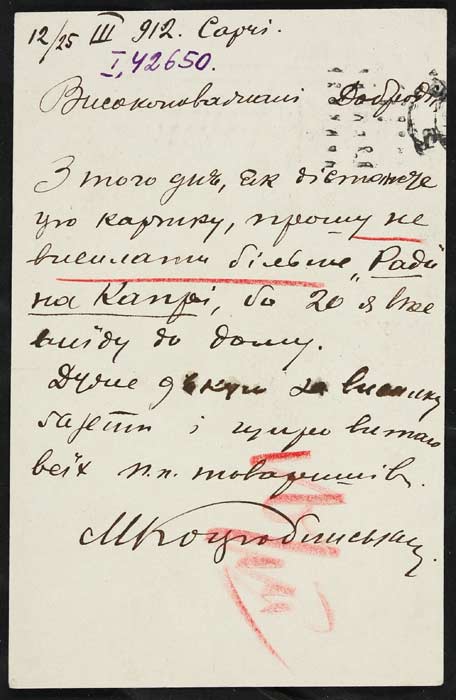 12/25 III 912. Capri.
I, 42650.
Високоповажний Добродію
З того дня, як дістанете
цю картку, прошу не
висилати більше „Ради"
на Капрі, бо 20 я вже
виїду до дому.
Дуже дякую за висилку
газети і щиро витаю
всіх п.п. товаришів.
МКоцюбинський.